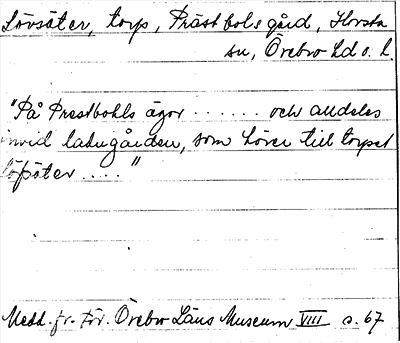 Lövsäter, torp, Prästbols gård, Hovsta
sn, Örebro hd o. l.
"På Prestbohls ägor ...... och alldeles
invid ladugården, som hörer till torpet
löfsäter ...."
Medd. fr. För. Örebro Läns Museum VIII s. 67